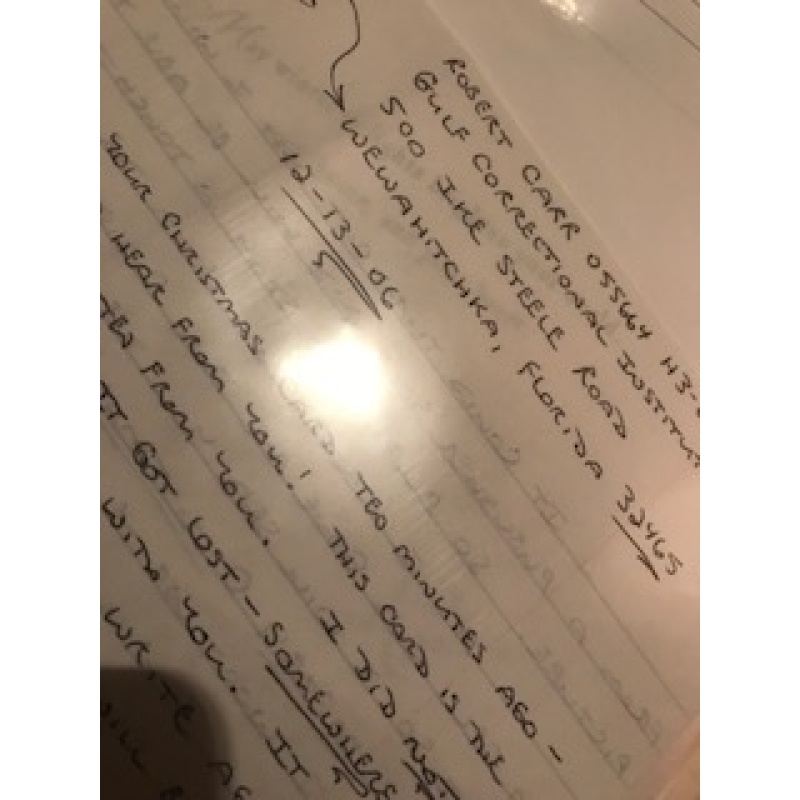 ROBERT CARR 055664 H3-
GULF CORRECTIONAL INSTITUT
500 IKE STEELE ROAD
WEWAHITCHKA, FLORIDA 32465
12-13-06
YOUR CHRISTMAS CARD TEO MINUTES AGO -
HEAR FROM YOU! THIS CARD IS THE
FROM YOU. I DID NOT
IT GOT LOST - SOMEWHERE
WITH YOU. IT
WRITE